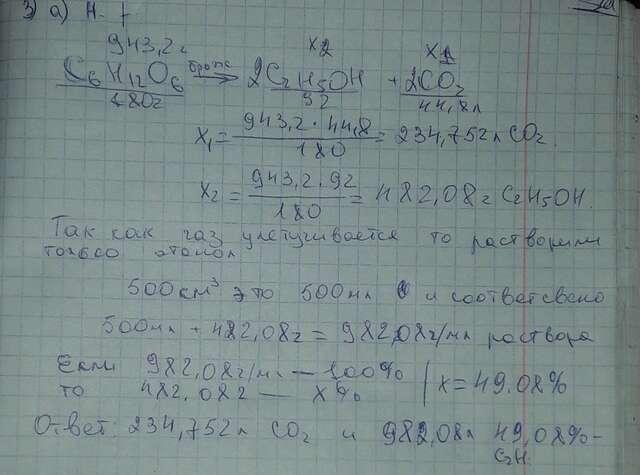 3) а) Н. т
943,2г x2 x1
C₆H₁₂O₆ броже→ 2C₂H₅OH + 2CO₂
180г 92 44,8л
x₁ = 943,2 · 44,8 / 180 = 234,752л CO₂.
x₂ = 943,2 . 92 / 180 = 482,08г C₂H₅OH.
Так как газ улетучивается то растворим
только этанол
500см³ это 500мл и соответсвено
500мл + 482,08г = 982,08г/мл раствора
Если 982,08г/мл — 100%
то 482,082 — x% | x = 49.08%
Ответ: 234,752л CO₂ и 982,08л 49,08%-
C₂H.